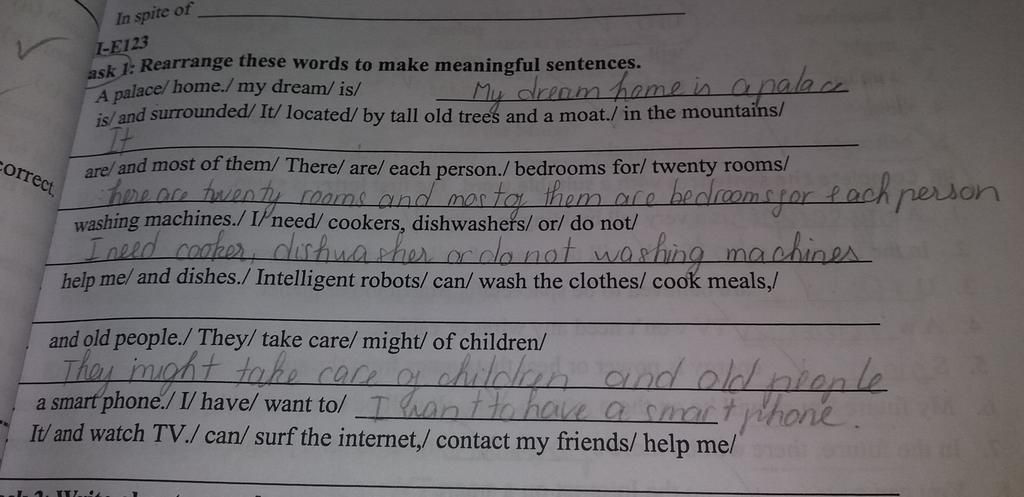 In spite of
I-E123
ask 1: Rearrange these words to make meaningful sentences.
A palace/ home./ my dream/ is/ My dream home is a palace
is/ and surrounded/ It/ located/ by tall old trees and a moat./ in the mountains/
It
correct.
are/ and most of them/ There/ are/ each person./ bedrooms for/ twenty rooms/
here are twenty rooms and most of them are bedrooms for each person
washing machines./ I/ need/ cookers, dishwashers/ or/ do not/
I need cooker, dishwasher or do not washing machines
help me/ and dishes./ Intelligent robots/ can/ wash the clothes/ cook meals,/
and old people./ They/ take care/ might/ of children/
They might take care of children and old people
a smart phone./ I/ have/ want to/ I want to have a smart phone.
It/ and watch TV./ can/ surf the internet,/ contact my friends/ help me/